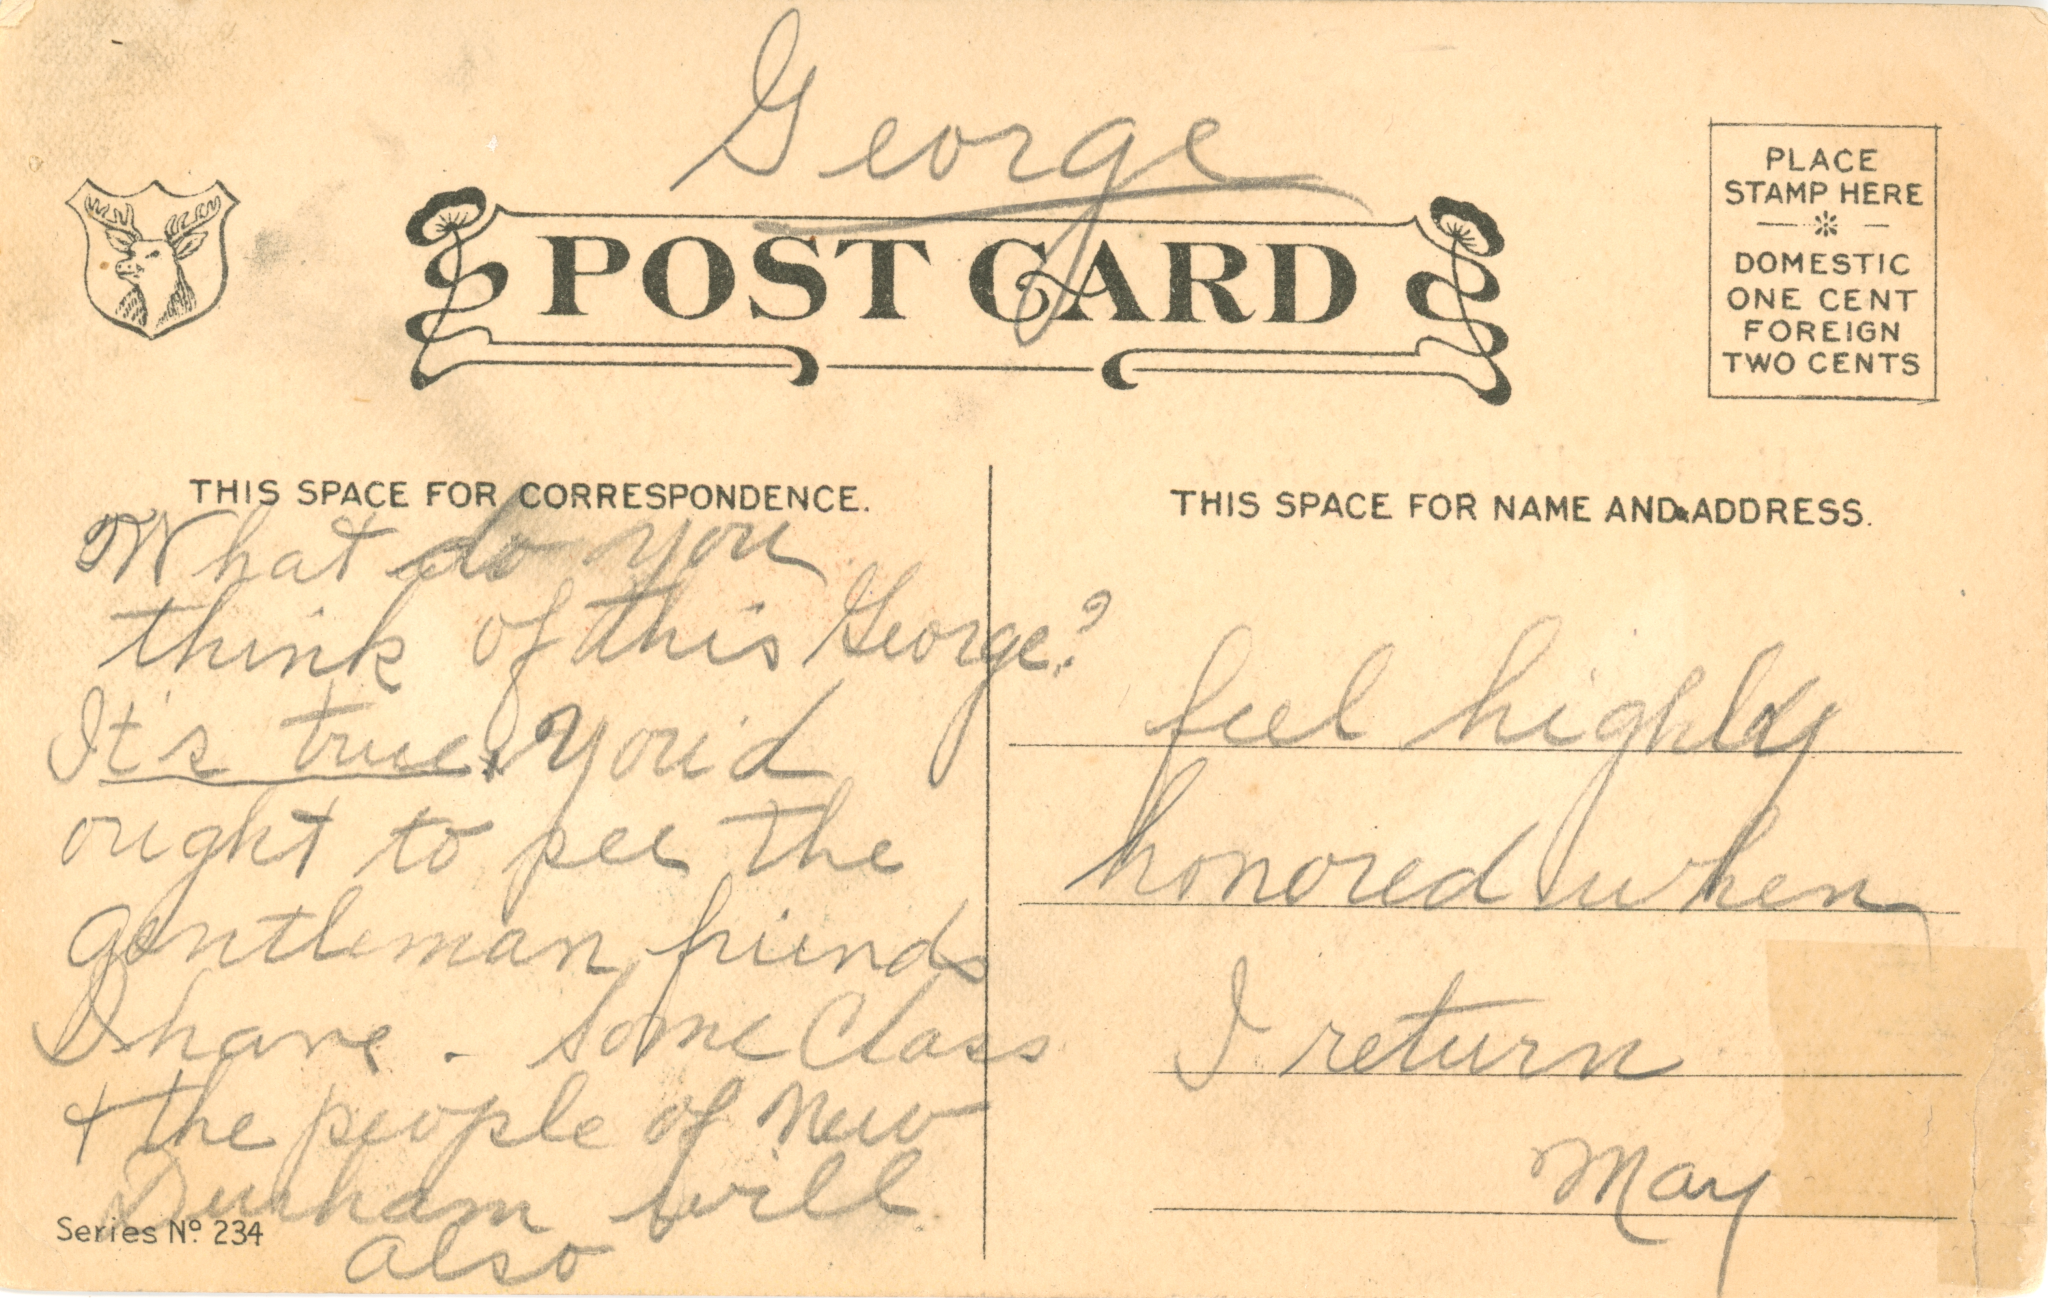 George
POST CARD
PLACE
STAMP HERE
DOMESTIC
ONE CENT
FOREIGN
TWO CENTS
THIS SPACE FOR CORRESPONDENCE.
What do you
think of this George?
It's true. You'd
ought to see the
gentleman friends
I have. Some Class
+ the people of New
Durham will
also
Series No. 234
THIS SPACE FOR NAME AND ADDRESS.
feel highly
honored when
I return
May